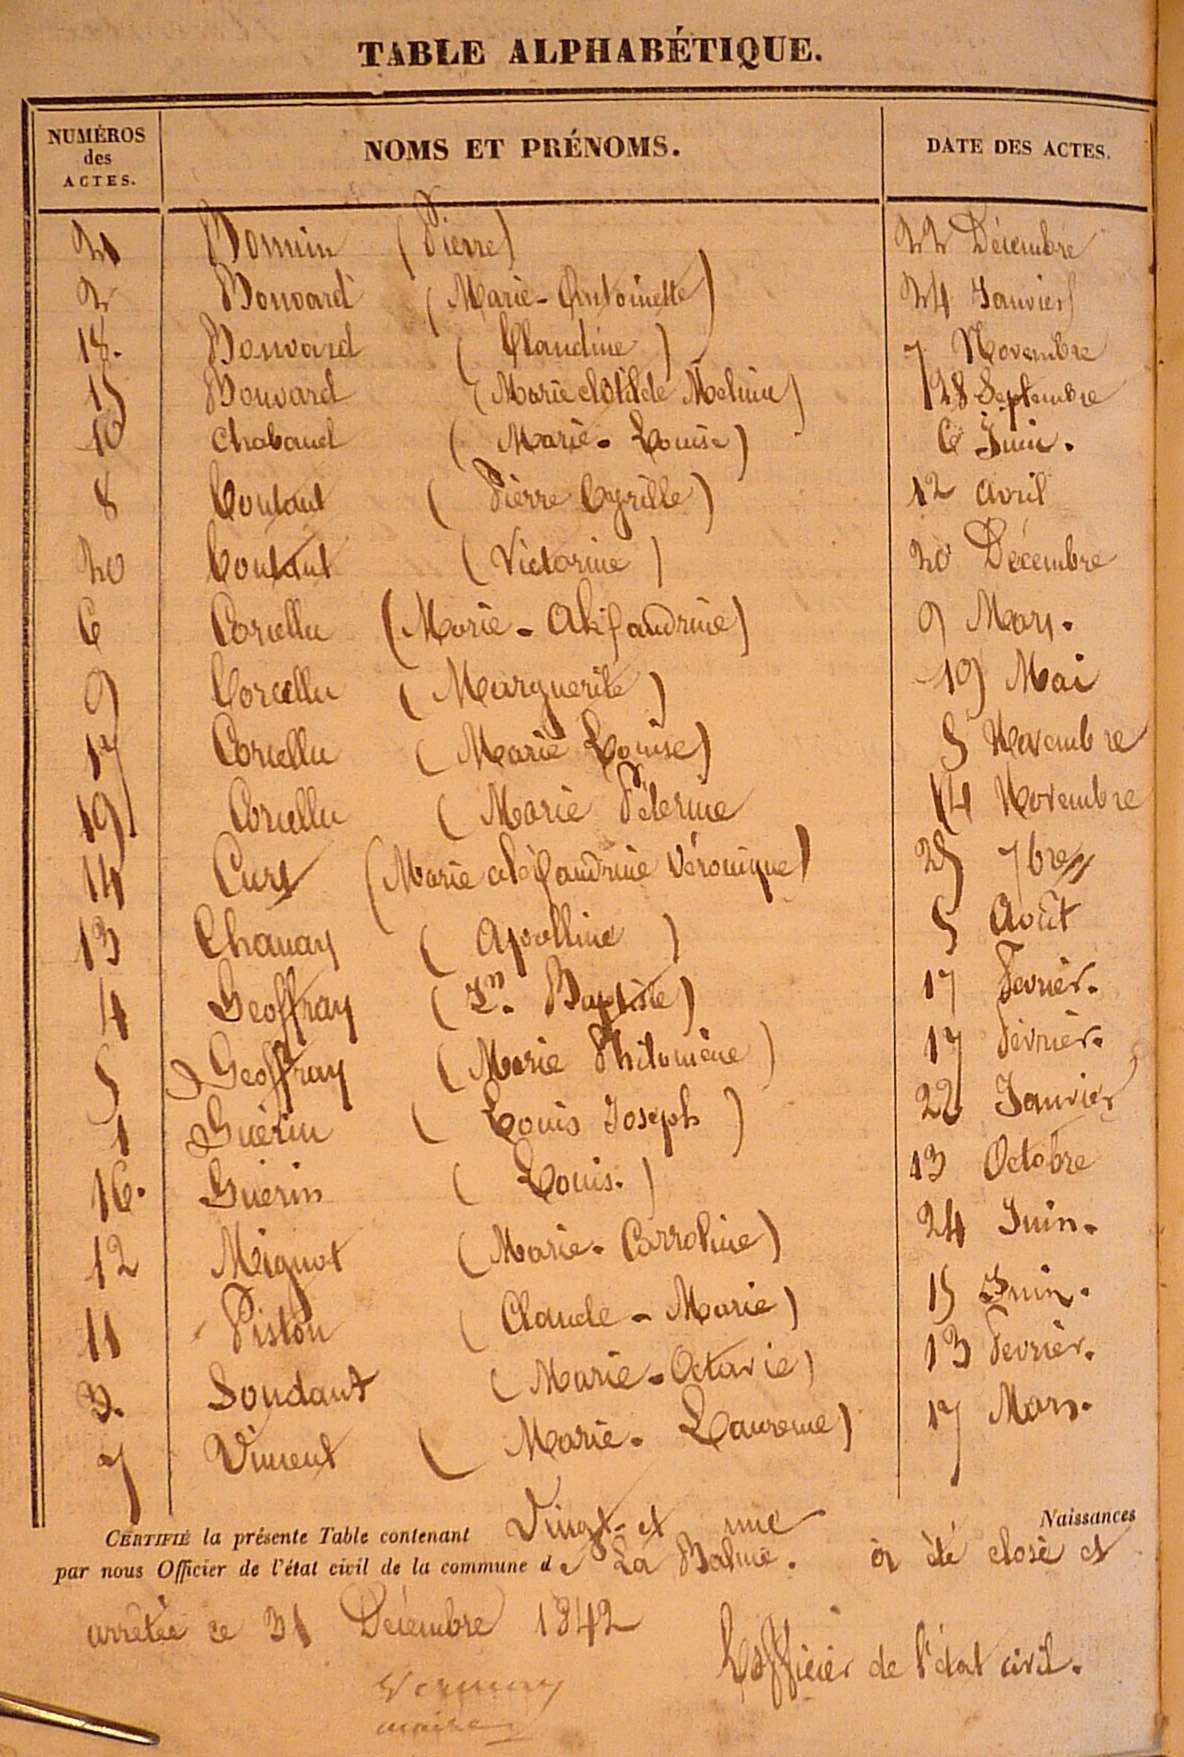 TABLE ALPHABÉTIQUE.
NUMÉROS des ACTES. NOMS ET PRÉNOMS. DATE DES ACTES.
21 (Pierre) 22 Décembre
2 Bouvard (Marie-Antoinette) 24 Janvier
18. Bouvard (Claudine) 7 Novembre
15 Bouvard (Marie clotilde) 28 Septembre
10 Chabaud (Marie-Louise) 6 Juin.
8 Coutant (Pierre Cyrille) 12 avril
20 Coutant (Victorine) 20 Décembre
6 Corcellu (Marie-Aléxandrine) 9 Mars.
9 Corcellu (Marguerite) 19 Mai
17 Corcellu (Marie Louise) 5 Novembre
19 Corcellu (Marie 14 Novembre
14 (Marie aléxandrine Véronique) 25 7bre
13 Chanay (Apolline) 5 Août
4 Geoffray (Jn. Baptiste) 17 Fevrier.
5 Geoffray (Marie Philomène) 17 Février.
1 Guérin (Louis Joseph) 22 Janvier
16. Guérin (Louis.) 13 Octobre
12 Mignot (Marie-Carroline) 24 Juin.
11 Piston (Claude-Marie) 15 Juin.
3. Soudant (Marie-Octavie) 13 Fevrier.
7 Vincent (Marie-Laurence) 17 Mars.
CERTIFIÉ la présente Table contenant Vingt-et une Naissances
par nous Officier de l'état civil de la commune de La Balme. a été close et
arrêtée ce 31 Décembre 1842
L'officier de l'état civil.
maire